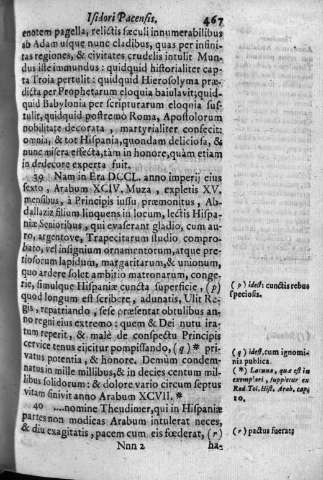 Isidori Pacensis. 467
enotem pagella, relictis sæculi innumerabilibus
ab Adam usque nunc cladibus, quas per infini-
tas regiones, & civitates crudelis intulit Mun-
dus ille immundus: quidquid historialiter cap-
ta Troia pertulit: quidquid Hierosolyma præ-
dicta per Prophetarum eloquia baiulavit; quid-
quid Babylonia per scripturarum eloquia sus-
tulit, quidquid postremò Roma, Apostolorum
nobilitate decorata, martyrialiter confecit:
omnia, & tot Hispania, quondam deliciosa, &
nunc misera effecta, tàm in honore, quàm etiam
in dedecore experta fuit.
39 Nam in Era DCCL. anno imperij eius
sexto, Arabum XCIV. Muza, expletis XV.
mensibus, à Principis iussu præmonitus, Ab-
dallaziz filium linquens in locum, lectis Hispa-
niæ Senioribus, qui evaserant gladio, cum au-
ro, argentove, Trapecitarum studio compro-
bato, vel insignium ornamentorum, atque pre-
tiosorum lapidum, margaritarum, & unionum,
quo ardere solet ambitio matronarum, conge-
rie, simulque Hispaniæ cuncta superficie, (p)
quod longum est scribere, adunatis, Ulit Re-
gis, repatriando, sese præsentat obtutibus an-
no regni eius extremo: quem & Dei nutu ira-
tum reperit, & malè de conspectu Principis
cervice tenus eiicitur pompisando, (q) * pri-
vatus potentia, & honore. Demùm condem-
natus in mille millibus, & in decies centum mil-
libus solidorum: & dolore vario circum septus
vitam finivit anno Arabum XCVII. *
40 ....nomine Theudimer, qui in Hispaniæ
partes non modicas Arabum intulerat neces,
& diu exagitatis, pacem cum eis fœderat, (r)
Nnn 2 ha-
(p) idest: cunctis rebus
speciosis.
(q) idest, cum ignomi-
nia publica.
(*) Lacuna, quæ est in
exemplari, suppletur ex
Rod. Tol. Hist. Arab. cap.
10.
(r) pactus fuerat